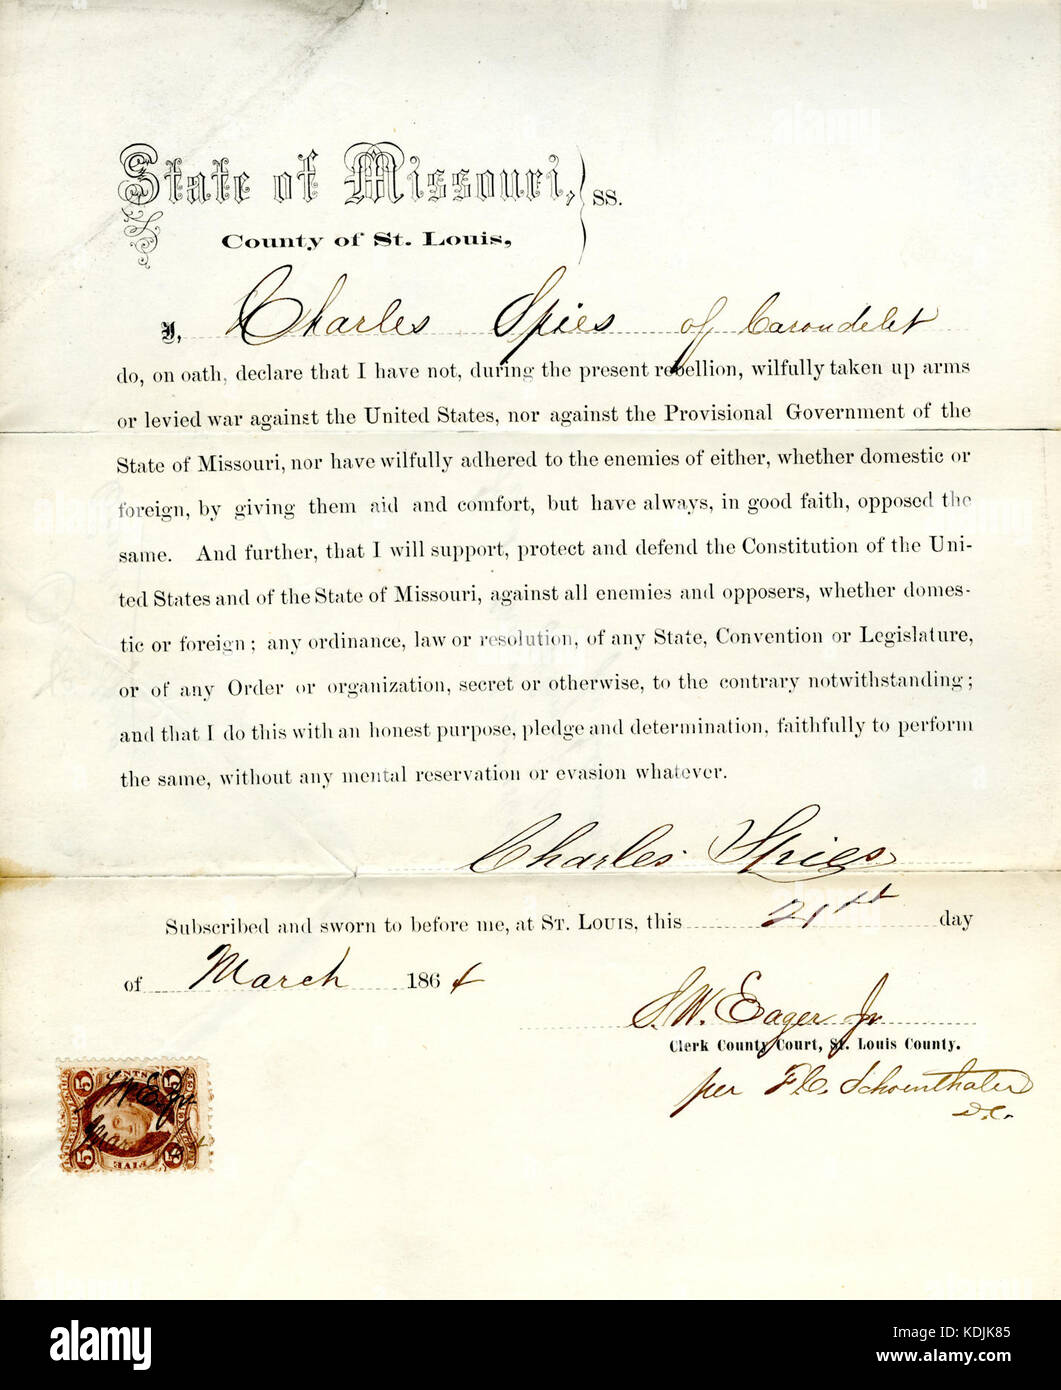 State of Missouri, } ss.
County of St. Louis,
I, Charles Spies of Carondelet
do, on oath, declare that I have not, during the present rebellion, wilfully taken up arms
or levied war against the United States, nor against the Provisional Government of the
State of Missouri, nor have wilfully adhered to the enemies of either, whether domestic or
foreign, by giving them aid and comfort, but have always, in good faith, opposed the
same. And further, that I will support, protect and defend the Constitution of the Uni-
ted States and of the State of Missouri, against all enemies and opposers, whether domes-
tic or foreign; any ordinance, law or resolution, of any State, Convention or Legislature,
or of any Order or organization, secret or otherwise, to the contrary notwithstanding;
and that I do this with an honest purpose, pledge and determination, faithfully to perform
the same, without any mental reservation or evasion whatever.
Charles Spies
Subscribed and sworn to before me, at St. Louis, this 21st day
of March 1864
S. W. Eager Jr
Clerk County Court, St. Louis County.
per F. C. Schoenthaler
D.C.
5 CENTS 5
S.W.E. Jr
March
5 FIVE 5
alamy
Image ID: KDJK85
www.alamy.com